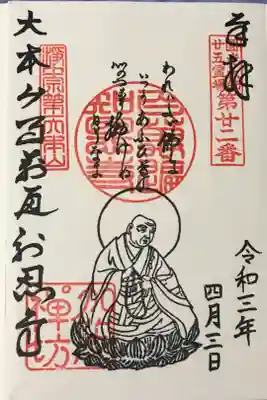 奉拝
廿五霊場
第廿二番
われはたゞ佛に
いつかあふひ草
心のつまに
かけぬ日ぞなき
大本山百萬遍知恩寺
令和三年
四月三日